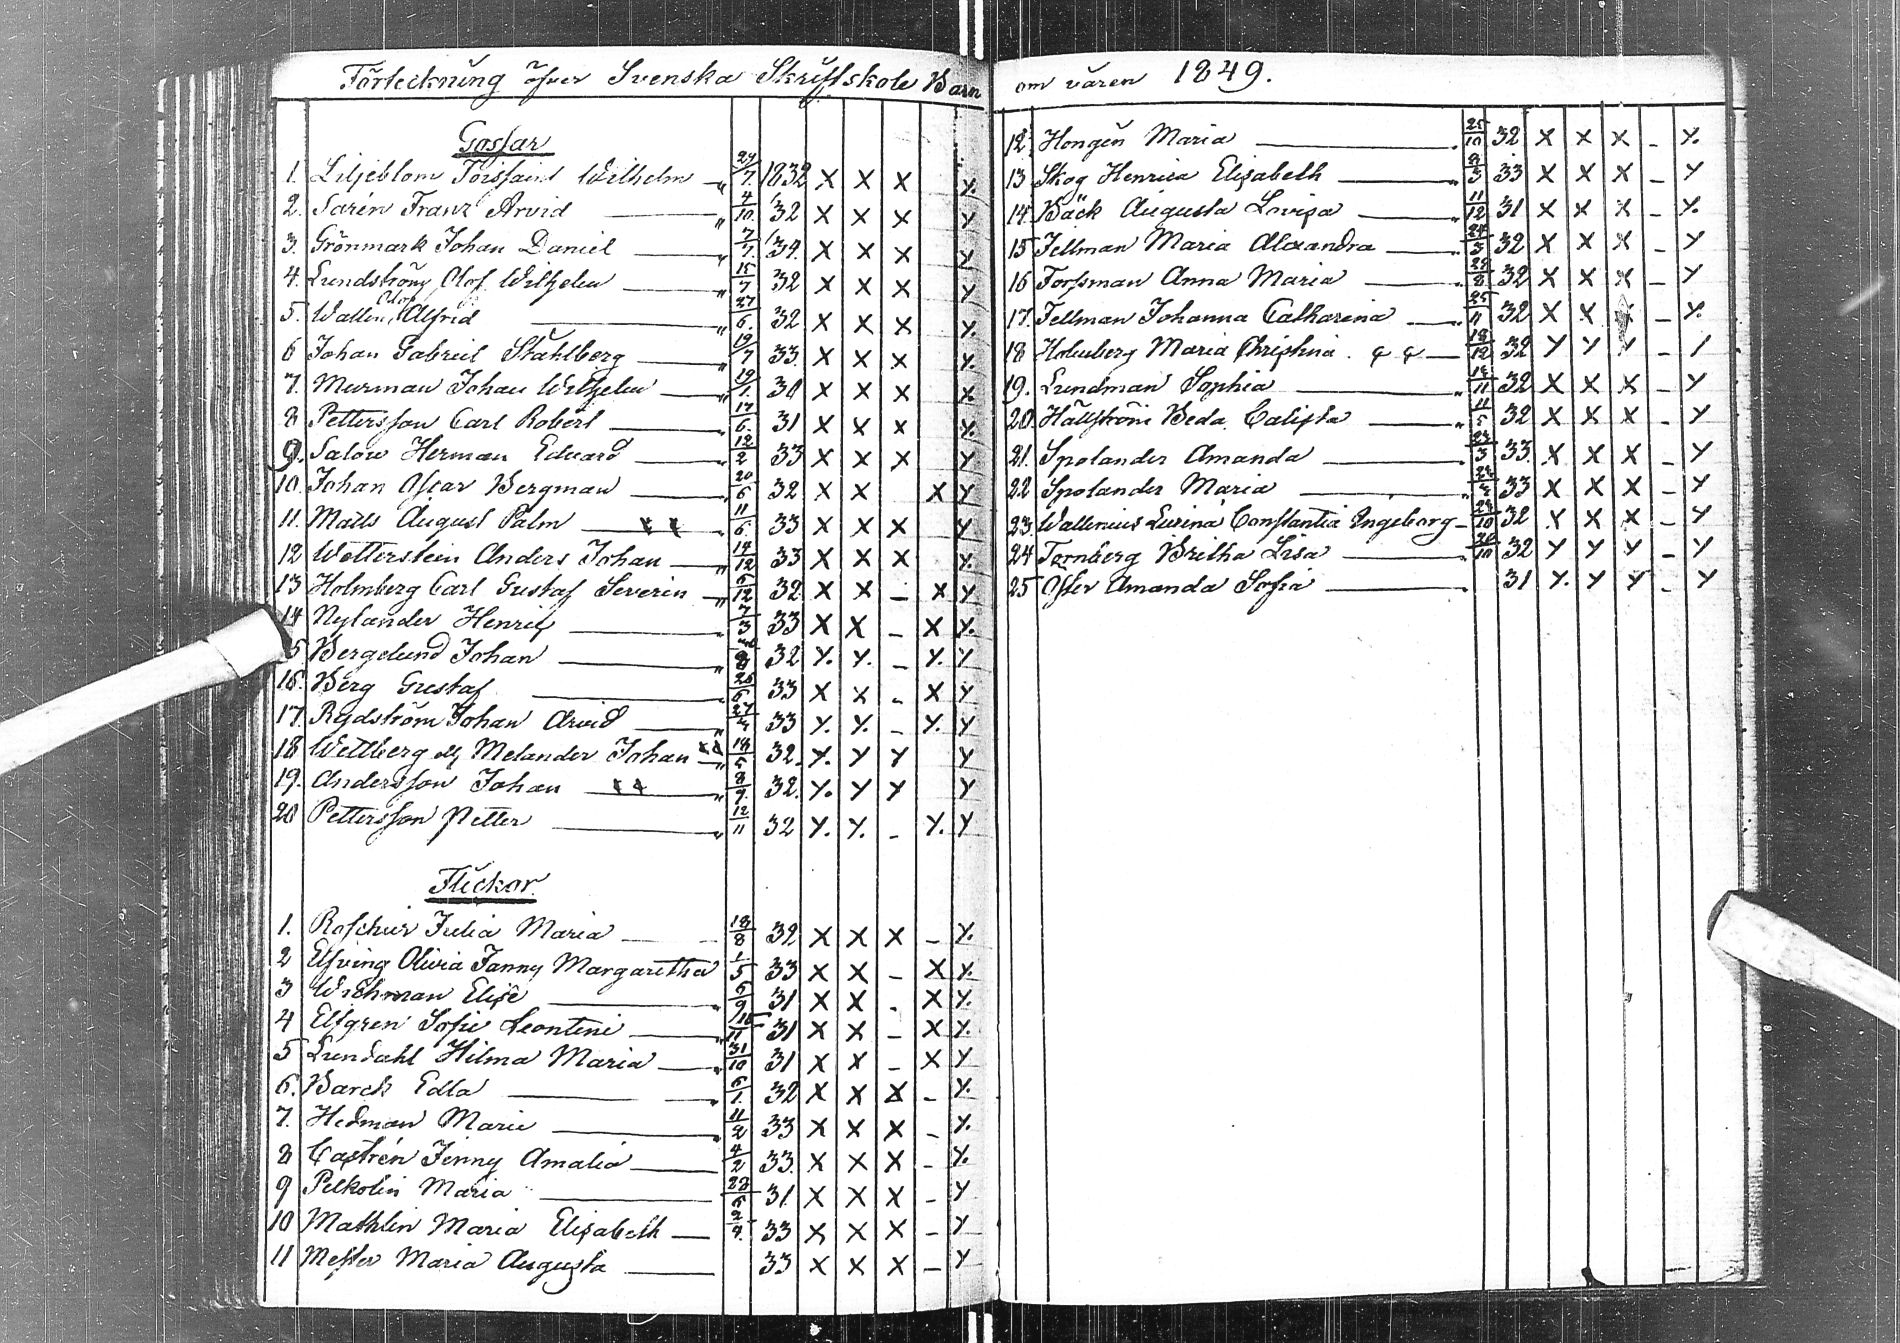 Förteckning öfver Svenska Skriftskole Barn om våren 1849.
Gossar
1. Liljeblom Wilhelm 27/7. 1832 X X X Y.
2. Sarén Franz Arvid 4/10. 32 X X X Y
3. Grönmark Johan Daniel 7/7. 32. X X X Y
4. Lundström Olof Wilhelm 15/7 32 X X X Y
5. Wallen Olof Alfrid 27/6. 32 X X X Y.
6 Johan Gabriel Ståhlberg 19/7 33. X X X Y.
7. Murman Johan Wilhelm 19/1. 30 X X X X
8 Pettersson Carl Robert 17/6. 31 X X X Y.
9. Salow Herman Eduard 12/2 33 X X X Y
10. Johan Oscar Bergman 20/6 32 X X X Y
11. Matts August Palm 11/6. 33 X X X Y
12 Wetterstein Anders Johan 14/12 33 X X X Y.
13 Holmberg Carl Gustaf Severin 6/12 32. X X - X Y
14 Nylander Henrik 7/3 33 X X - X Y.
15 Bergelund Johan 32 Y. Y. - Y. Y
16. Berg Gustaf 26/6 33 X X - X Y
17. Rydström Johan Arvid 27/4 33 Y. Y. - Y. Y
18 Wettberg ell. Melander Johan 18/5 32. Y. Y Y Y
19. Andersson Johan 8/9. 32. Y. Y Y Y
20 Pettersson Petter 12/11 32 Y. Y. - Y. Y
Flickor.
1. Roschier Julia Maria 18/8 32 X X X - Y.
2 Elfving Olivia Fanny Margaretha 1/5 33 X X - X Y.
3 Wichman Elise 6/9 31 X X - X Y.
4 Elfgren Sofie Leontine 15/11 31 X X - X Y.
5 Lundahl Hilma Maria 31/10 31 X X - X Y
6. Barck Edla 6/1. 32 X X X - Y.
7. Hedman Marie 11/2 33 X X X - Y.
8 Castrén Jenny Amalia 4/2 33. X X X - Y.
9 Pelkolin Maria 28/6 31. X X X - Y
10 Mathlin Maria Elisabeth 2/9. 33 X X X - Y
11 Mester Maria Augusta 33 X X X - Y
12. Hongén Maria 25/10 32 X X X - Y.
13 Skog Henrica Elisabeth 8/3 33 X X X - Y
14. Bäck Augusta Lovisa 11/12 31 X X X - Y.
15 Fellman Maria Alexandra 24/3 32 X X X - Y
16 Forsman Anna Maria 28/8 32 X X X - Y
17. Fellman Johanna Catharina 25/11 32 X X X - Y.
18 Holmberg Maria Christina 18/12 32 Y Y Y - Y
19. Lundman Sophia 18/11 32 X X X - Y
20. Hällström Beda Calista 11/5 32 X X X - Y
21. Spolander Amanda 23/3 33. X X X - Y
22 Spolander Maria 33 X X X - Y
23. Wallenius Lusina Constantia Ingeborg 24/10 32 X X X - Y
24 Tornberg Britha Lisa 20/10 32 Y Y Y - Y
25 Öster Amanda Sofia 31 Y. Y Y - Y